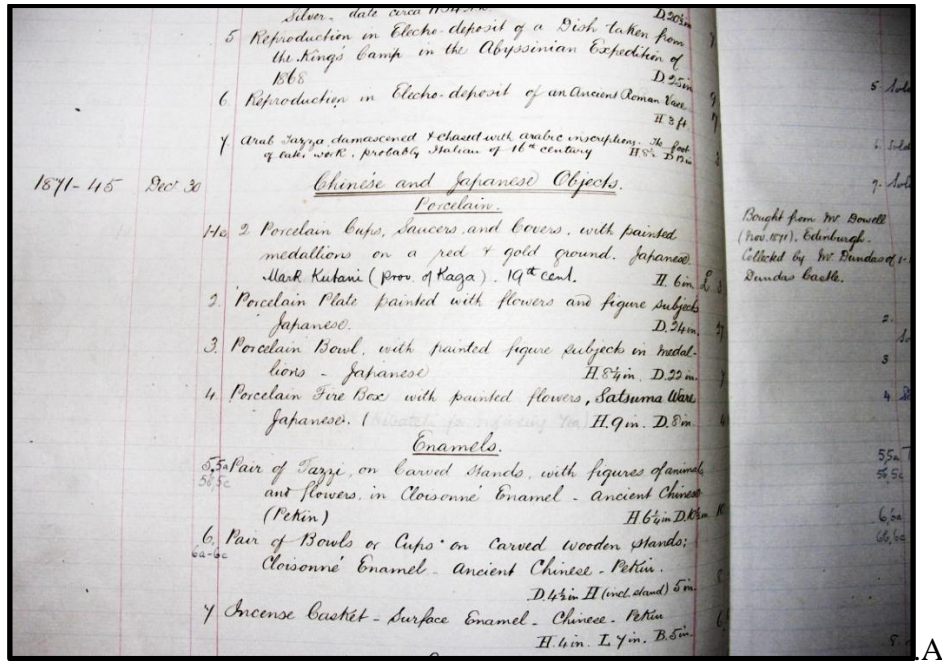 Silver. date circa
D.20½in
5 Reproduction in Electro-deposit of a Dish taken from
the King's Camp in the Abyssinian Expedition of
1868 D.25in
6. Reproduction in Electro-deposit of an Ancient Roman Vase
H. 3 ft.
7. Arab Tazza, damascened & chased with arabic inscriptions. The foot
of later work, probably Italian of 16th century H.8½ D
1871-45 Decr 30 Chinese and Japanese Objects.
Porcelain.
1-1a 2 Porcelain Cups, Saucers, and Covers, with painted
medallions on a red & gold ground. Japanese
Mark Kutani (prov. of Kaga). 19th cent. H. 6in £ 3
2. Porcelain Plate painted with flowers and figure subjects
Japanese. D.24in.
3. Porcelain Bowl, with painted figure subjects in medal-
lions - Japanese H.8¼in. D.22in.
4. Porcelain Fire Box with painted flowers, Satsuma Ware
Japanese. ( H.9in. D.8in. 4
Enamels.
5,5a Pair of Tazzi, on Carved Stands, with figures of animals
5b,5c and flowers, in Cloisonné Enamel - Ancient Chinese
(Pekin) H.6¼in D.10½in 10
6, Pair of Bowls or Cups on Carved wooden stands;
6a-6c Cloisonné Enamel - Ancient Chinese - Pekin.
D.4½in H (incl. stand) 5in.
7 Incense Casket - Surface Enamel - Chinese - Pekin 6
H.4in. L 7in. B.5in.
5.
6.
7.
Bought from Mr Dowell
(Nov. 1871), Edinburgh.
Collected by Mr Dundas of
Dundas Castle.
2.
3
4
5,5a
5b,5c
6,6a
6b,6c
8.
.A